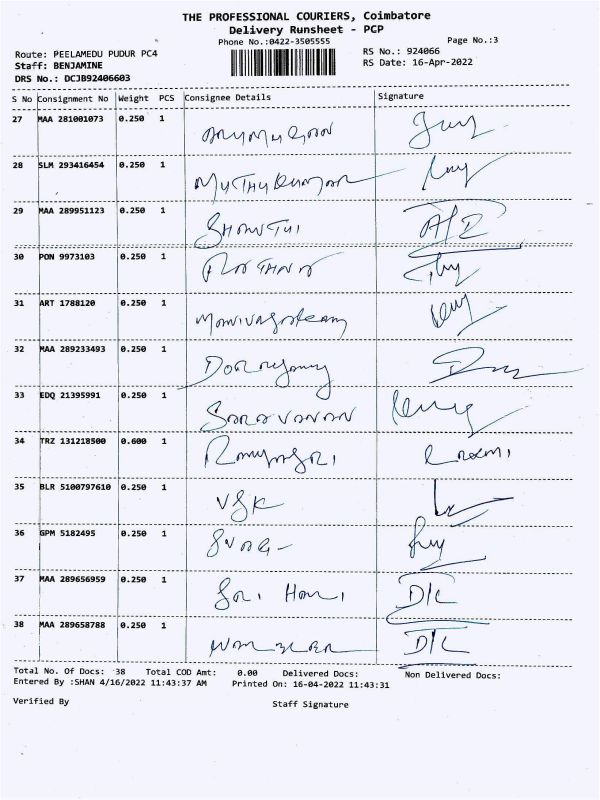 THE PROFESSIONAL COURIERS, Coimbatore
Delivery Runsheet - PCP
Phone No.:0422-3505555 Page No.:3
Route: PEELAMEDU PUDUR PC4 RS No.: 924066
Staff: BENJAMINE RS Date: 16-Apr-2022
DRS No.: DCJB92406603
S No Consignment No Weight PCS Consignee Details Signature
27 MAA 281001073 0.250 1
28 SLM 293416454 0.250 1 MUTHUKUMAR
29 MAA 289951123 0.250 1 SHANTHI
30 PON 9973103 0.250 1
31 ART 1788120 0.250 1
32 MAA 289233493 0.250 1
33 EDQ 21395991 0.250 1 SARAVANAN
34 TRZ 131218500 0.600 1
35 BLR 5100797610 0.250 1 VGK
36 GPM 5182495 0.250 1
37 MAA 289656959 0.250 1 Sri Hari D/C
38 MAA 289658788 0.250 1 D/C
Total No. Of Docs: 38 Total COD Amt: 0.00 Delivered Docs: Non Delivered Docs:
Entered By :SHAN 4/16/2022 11:43:37 AM Printed On: 16-04-2022 11:43:31
Verified By Staff Signature